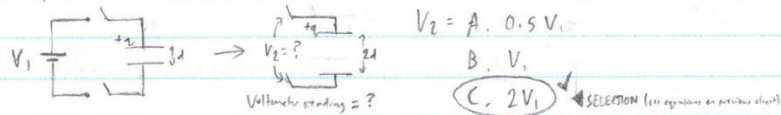 V₁
+q
d
V₂ = ?
+q
2d
Voltmeter reading = ?
V₂ = A. 0.5 V₁
B. V₁
C. 2V₁
SELECTION (see equations on previous sheet)